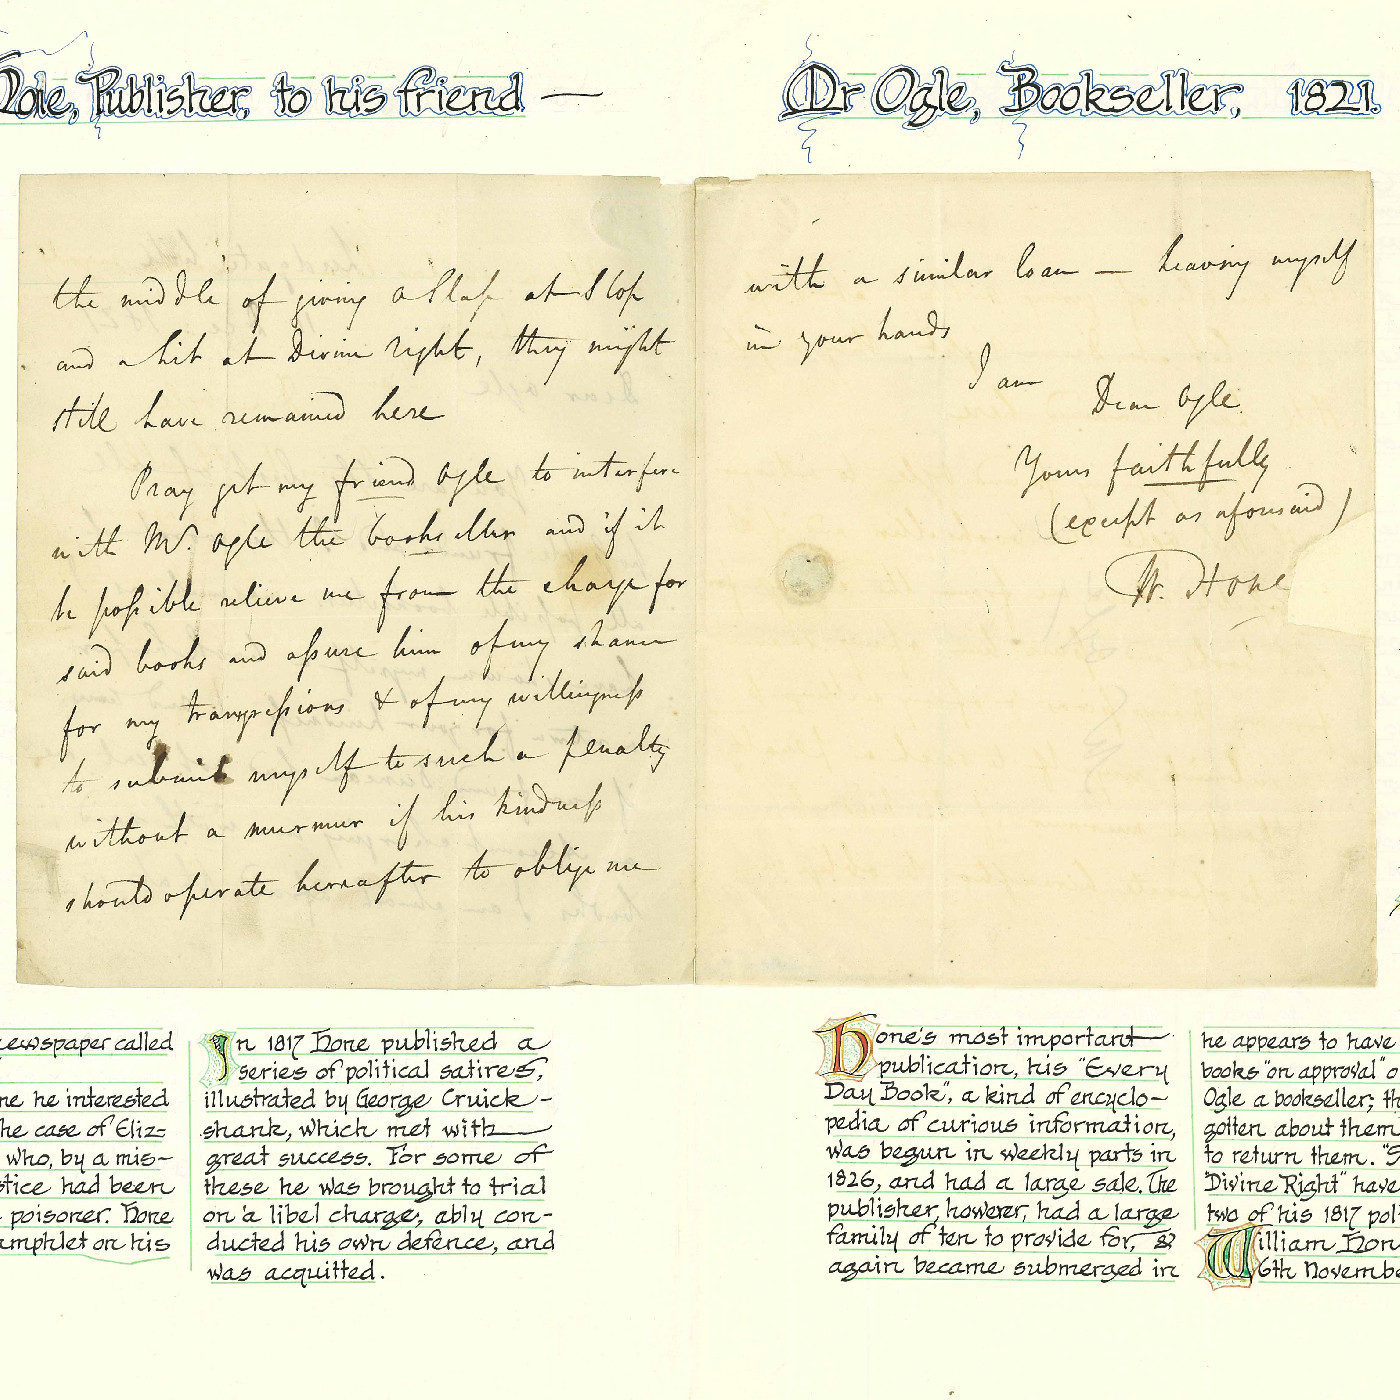 Hone, Publisher, to his friend — Mr Ogle, Bookseller, 1821.
the middle of giving a Slap at Slop
and a hit at Divine right, they might
still have remained here
Pray get my friend Ogle to interfere
with Mr. Ogle the bookseller and if it
be possible relieve me from the charge for
said books and assure him of my shame
for my transgressions & of my willingness
to submit myself to such a penalty
without a murmur if his kindness
should operate hereafter to oblige me
with a similar loan — leaving myself
in your hands
I am
Dear Ogle
Yours faithfully
(except as aforesaid)
W. Hone
newspaper called
he interested
he case of Eliz=
who, by a mis-
stice had been
poisoner. Hone
amphlet on his
In 1817 Hone published a
series of political satires,
illustrated by George Cruick-
shank, which met with
great success. For some of
these he was brought to trial
on a libel charge, ably con-
ducted his own defence, and
was acquitted.
Hone's most important
publication, his "Every
Day Book", a kind of encyclo-
pedia of curious information,
was begun in weekly parts in
1826, and had a large sale. The
publisher, however, had a large
family of ten to provide for, &
again became submerged in
he appears to have
books "on approval"
Ogle a bookseller;
gotten about them
to return them.
"Divine Right" have
two of his 1817 pol
William Hon
6th Novembe